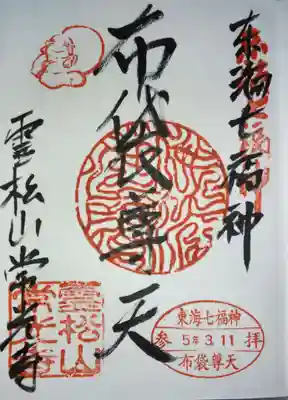 東海七福神
布袋尊天
霊松山常光寺
霊松山
常光寺
東海七福神
参 5年3.11 拝
布袋尊天